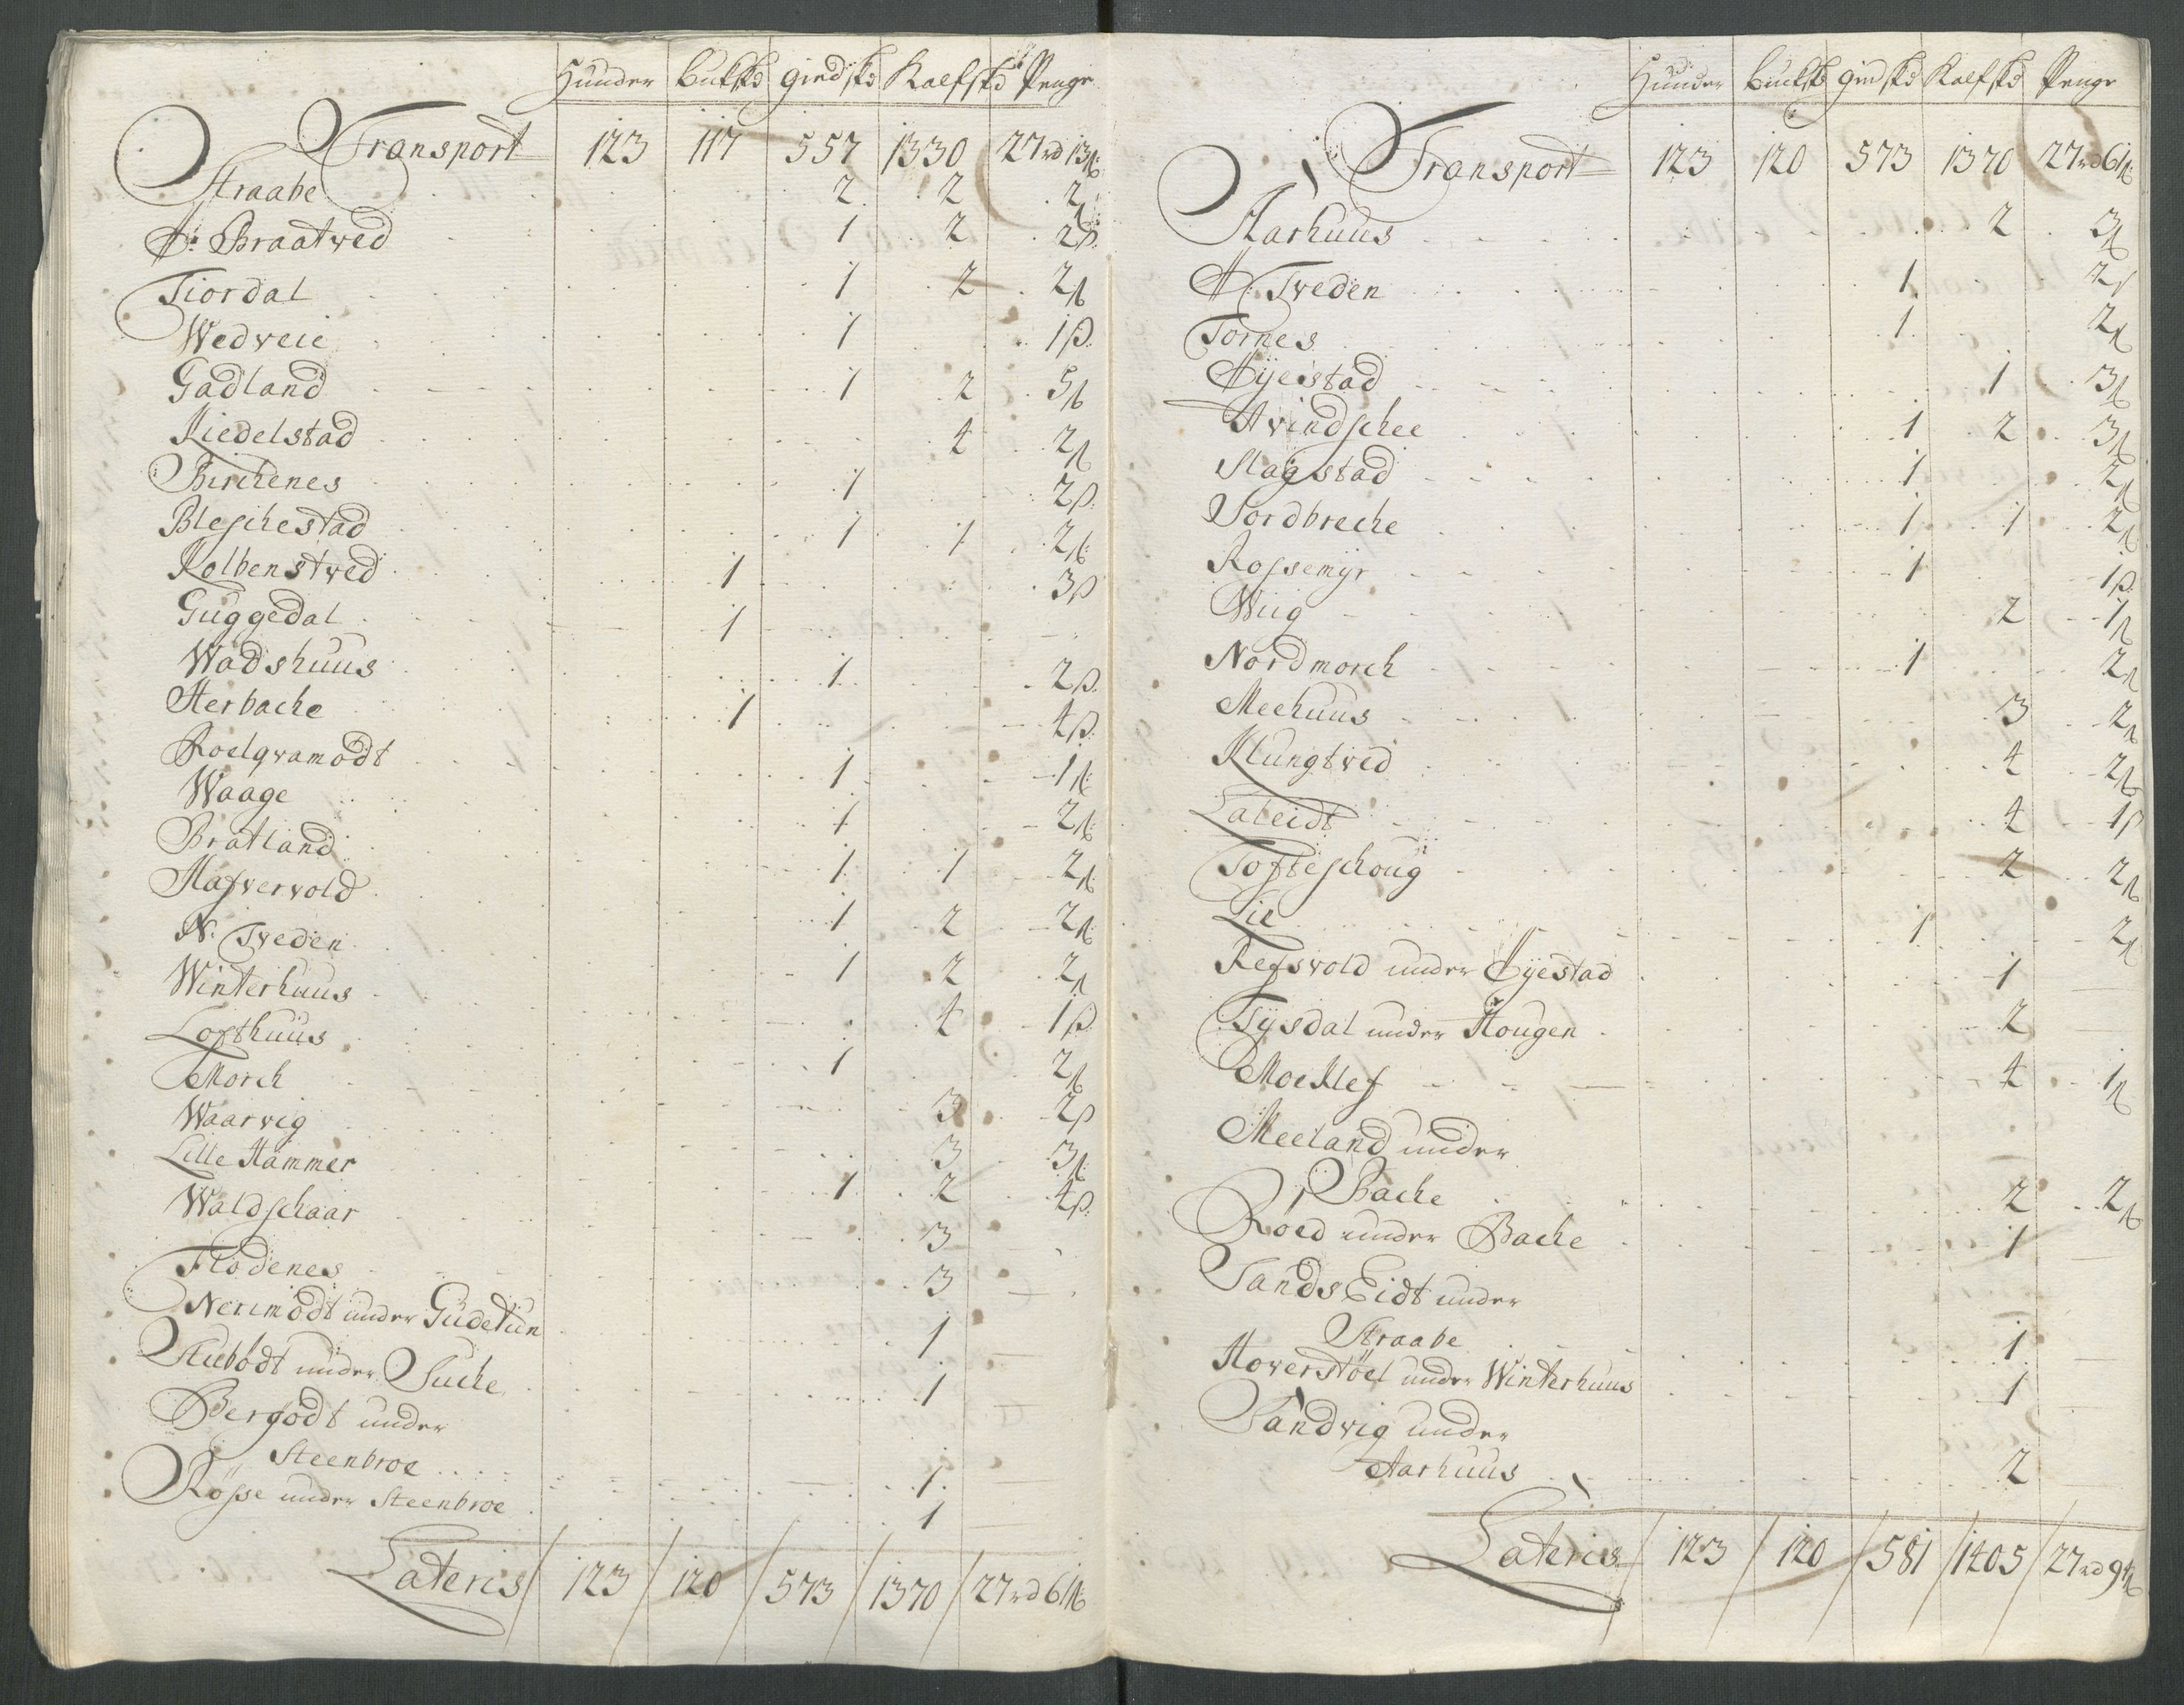 Hunder Bukskd giedskd Kalfskd Penge
Transport 123 117 557 1330 27rd 1ß
Straabe 2 2 2ß
H: Braatved 1 2 2ß
Tiordal 1 2 2ß
Wedveie 1 1ß
Gadland 1 2 5ß
Kiedelstad 4 2ß
Birchenes 1 2ß
Bleschestad 1 1 2ß
Kolbenstved 1 3ß
Guggedal 1
Wadshuus 1 2ß
Herbache 1 4ß
Roelqvamødt 1 1ß
Waage 1 2ß
Bratland 1 1 2ß
Hafvervold 1 2 2ß
N. Tveden 1 2 2ß
Winterhuus 4 1ß
Lofthuus 1 2ß
Morch 3 2ß
Waarvig 3 3ß
Lille Hammer 1 2 4ß
Waldschaar 3
Flodenes 3
Nerimødt under Gudetun 1
Stubødt under Suche 1
Bergødt under
Steenbroe 1
Røsse under Steenbroe 1
Lateris 123 120 573 1370 27rd 6ß
Hunder Bukskd giedskd Kalfskd Penge
Transport 123 120 573 1370 27rd 6ß
Aarhuus 2 3ß
H. Tveden 1 2ß
Tornes 1 2ß
Øyestad 1 3ß
Hvindschee 1 2 3ß
Slagstad 1 2ß
Sordbreche 1 1 2ß
Rossemyr 1 1ß
Wiig 2 1ß
Nordmorch 1 2ß
Meehuus 3 2ß
Klungtved 4 2ß
Laleidt 4 1ß
Tofteschoug 2 2ß
Lie 1 2ß
Refsvold under Øyestad 1
Tysdal under Hougen 2
Moe Klef 4 1ß
Meeland under
Bache 2 2ß
Roed under Bache 1
Sands Eidt under
Straabe 1
Hoverstøel under Winterhuus 1
Sandvig under
Aarhuus 2
Lateris 123 120 581 1405 27rd 9ß